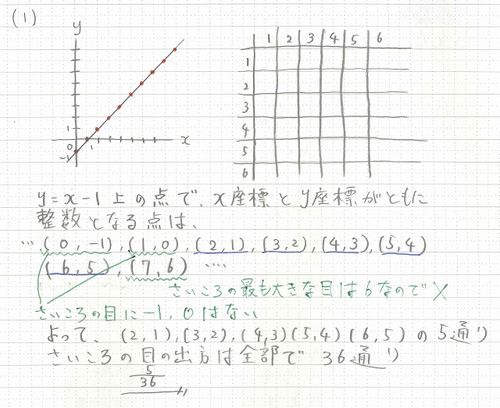 (1)
y
1
0
-1
1
x
1 2 3 4 5 6
1
2
3
4
5
6
y=x-1 上の点で、x座標とy座標がともに
整数となる点は、
…(0,-1),(1,0),(2,1),(3,2),(4,3),(5,4)
(6,5),(7,6) ….
さいころの最も大きな目は6なので×
さいころの目に-1,0はない
よって、(2,1),(3,2),(4,3)(5,4)(6,5)の5通り
さいころの目の出方は全部で 36通り
5
36